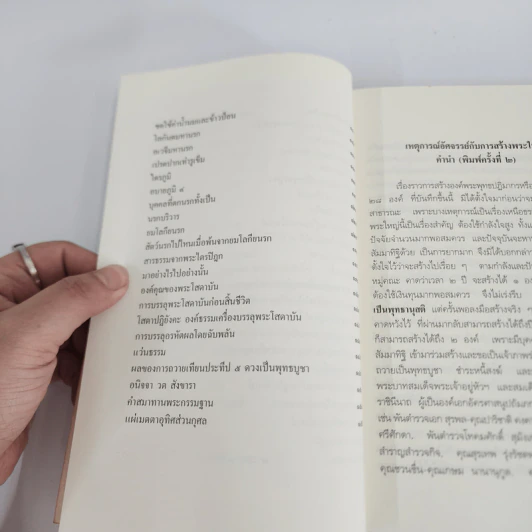 ชดใช้ค่าน้ำนมและข้าวป้อน
โลกันตมหานรก
อเวจีมหานรก
เปรตปากเท่ารูเข็ม
ไตรภูมิ
อบายภูมิ ๔
บุคคลที่ตกนรกทั้งเป็น
นรกบริวาร
ยมโลกียนรก
สัตว์นรกไปไหนเมื่อพ้นจากยมโลกียนรก
สารธรรมจากพระไตรปิฎก
มาอย่างไรไปอย่างนั้น
องค์คุณของพระโสดาบัน
การบรรลุพระโสดาบันก่อนสิ้นชีวิต
โสดาปฏิยังคะ องค์ธรรมเครื่องบรรลุพระโสดาบัน
การบรรลุอรหัตผลโดยฉับพลัน
แว่นธรรม
ผลของการถวายเทียนประทีป ๕ ดวงเป็นพุทธบูชา
อนิจจา วต สังขารา
คำสมาทานพระกรรมฐาน
แผ่เมตตาอุทิศส่วนกุศล
เหตุการณ์อัศจรรย์กับการสร้างพระให
คำนำ (พิมพ์ครั้งที่ ๒)
เรื่องราวการสร้างองค์พระพุทธปฏิมากรหรือ
๒๘ องค์ ที่บันทึกขึ้นนี้ มิได้ตั้งใจมาก่อนว่าจะ
สาธารณะ เพราะบางเหตุการณ์เป็นเรื่องเหนือธรร
พระใหญ่นี้เป็นเรื่องสำคัญ ต้องใช้กำลังใจสูง ทั้งแ
ปัจจัยจำนวนมากพอสมควร และปัจจุบันจะหา
สัมมาทิฐิด้วย เป็นการยากมาก จึงมิได้บอกกล่าว
ตั้งใจไว้ว่าจะสร้างไปเรื่อย ๆ ตามกำลังและปั
หมู่คณะ คาดว่าเวลา ๒ ปี จะสร้างได้ ๑ องค
ต้องใช้เงินทุนมากพอสมควร จึงไม่เร่งรีบ
เป็นพุทธานุสติ แต่ครั้นพอลงมือสร้างจริง ๆ
คาดหวังไว้ ที่ผ่านมากลับสามารถสร้างได้ถึงป
ก็สามารถสร้างได้ถึง ๒ องค์ เพราะมีบุคค
สัมมาทิฐิ เข้ามาร่วมสร้างและขอเป็นเจ้าภาพ
ถวายเป็นพุทธบูชา ชำระหนี้สงฆ์ และ
พระบาทสมเด็จพระเจ้าอยู่หัวฯ และสมเด
ราชินีนาถ ผู้เป็นองค์เอกอัครศาสนูปถัมภก
เช่น พันตำรวจเอก สุรพล-คุณปาริชาติ คงคา
ศรีศักดา, พันตำรวจโทคมศักดิ์ สุมัง
สำราญสำรวจกิจ, คุณสุรเทพ รุ่งรัชต
คุณชวนชื่น-คุณเกษม นานานุกูล,